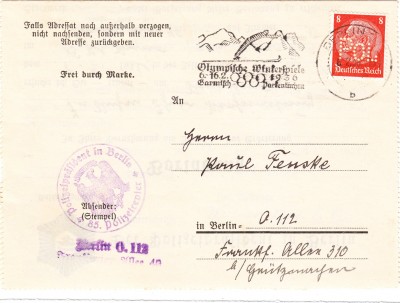 Falls Adressat nach außerhalb verzogen,
nicht nachsenden, sondern mit neuer
Adresse zurückgeben.
Frei durch Marke.
Olympische Winterspiele
6.-16.2. 1936
Garmisch- Partenkirchen
8 8
POL
Deutsches Reich
b
An
Herrn
Paul Fenske
Polizeipräsident in Berlin
Absender:
(Stempel)
85. Polizeirevier
in Berlin- O. 112
Berlin O. 112
Frankf. Allee 310
b/